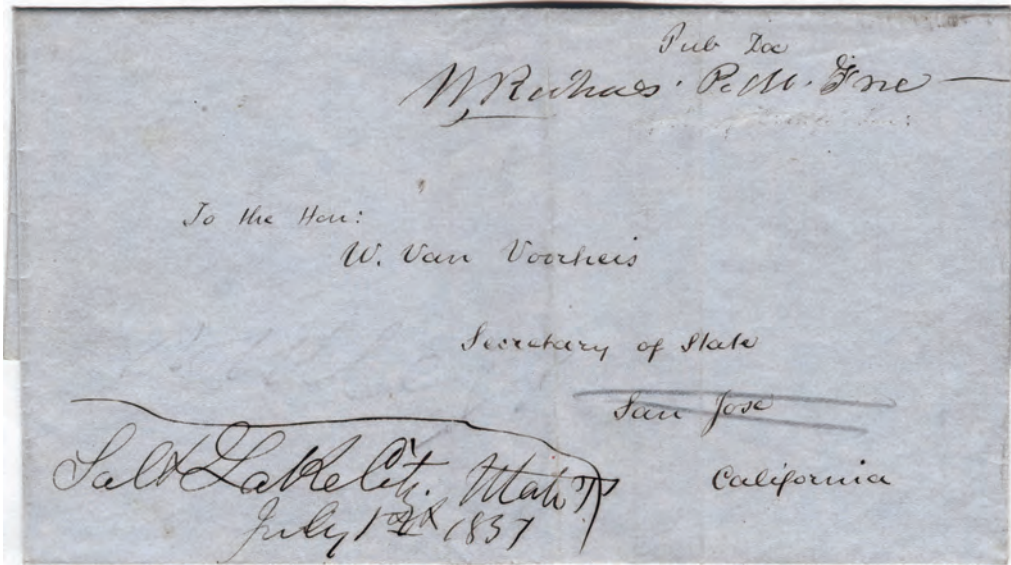 Pub Doc
W Richards. P.M. Free
To the Hon:
W. Van Voorheis
Secretary of State
San Jose
California
Salt Lake City. Utah T
July 1st 1851